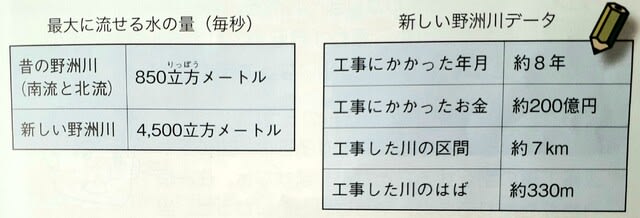 最大に流せる水の量（毎秒）
昔の野洲川
（南流と北流）
850立方メートル
りっぽう
新しい野洲川
4,500立方メートル
新しい野洲川データ
工事にかかった年月
約8年
工事にかかったお金
約200億円
工事した川の区間
約7km
工事した川のはば
約330m